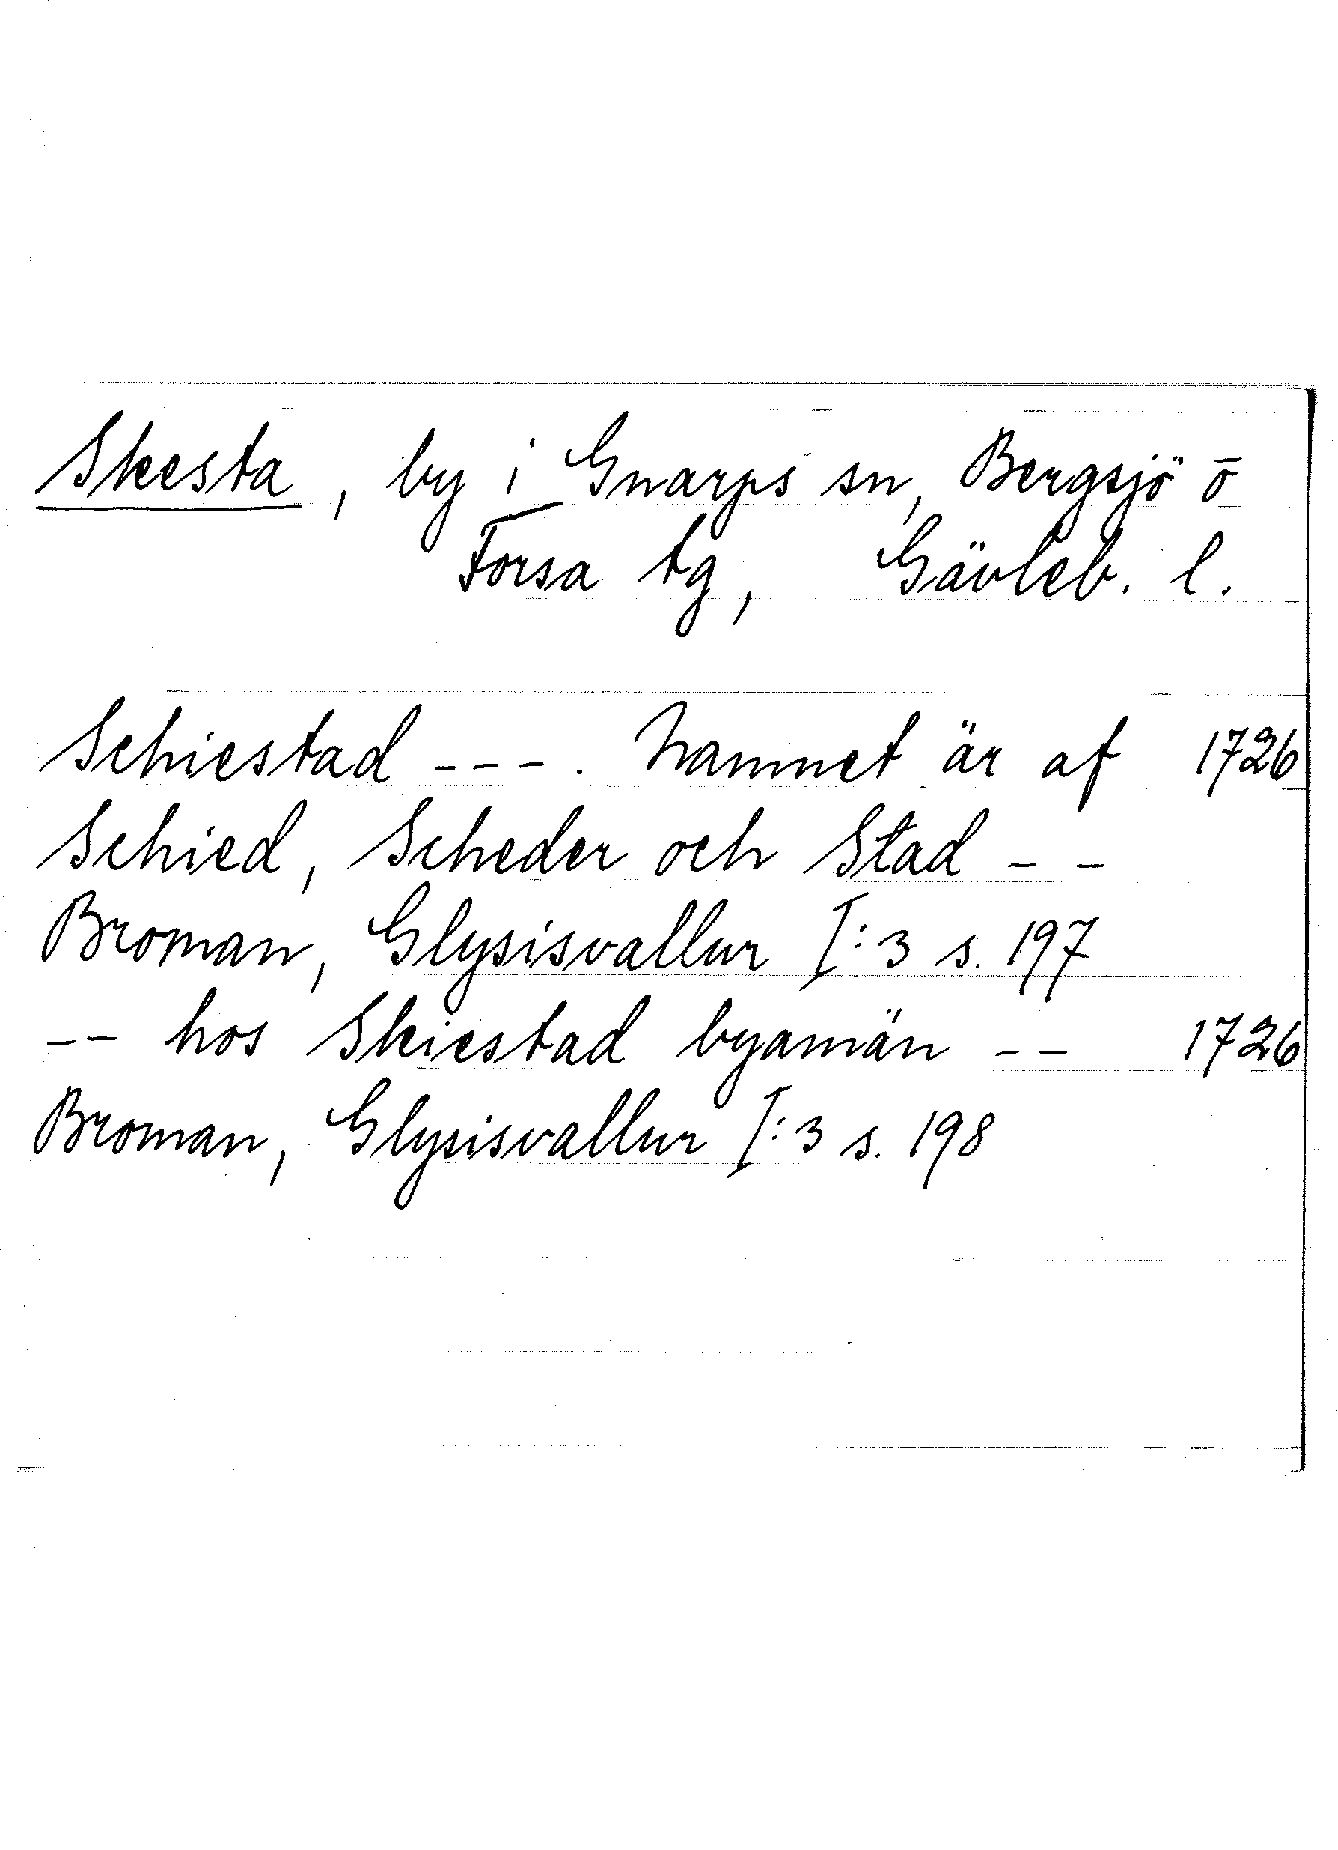 Skesta, by i Gnarps sn, Bergsjö o
Forsa tg, Gävleb. l.
Schiestad ---. Namnet är af 1726
Schied, Scheder och Stad --
Broman, Glysisvallur I:3 s. 197
-- hos Skiestad byamän -- 1726
Broman, Glysisvallur I:3 s. 198